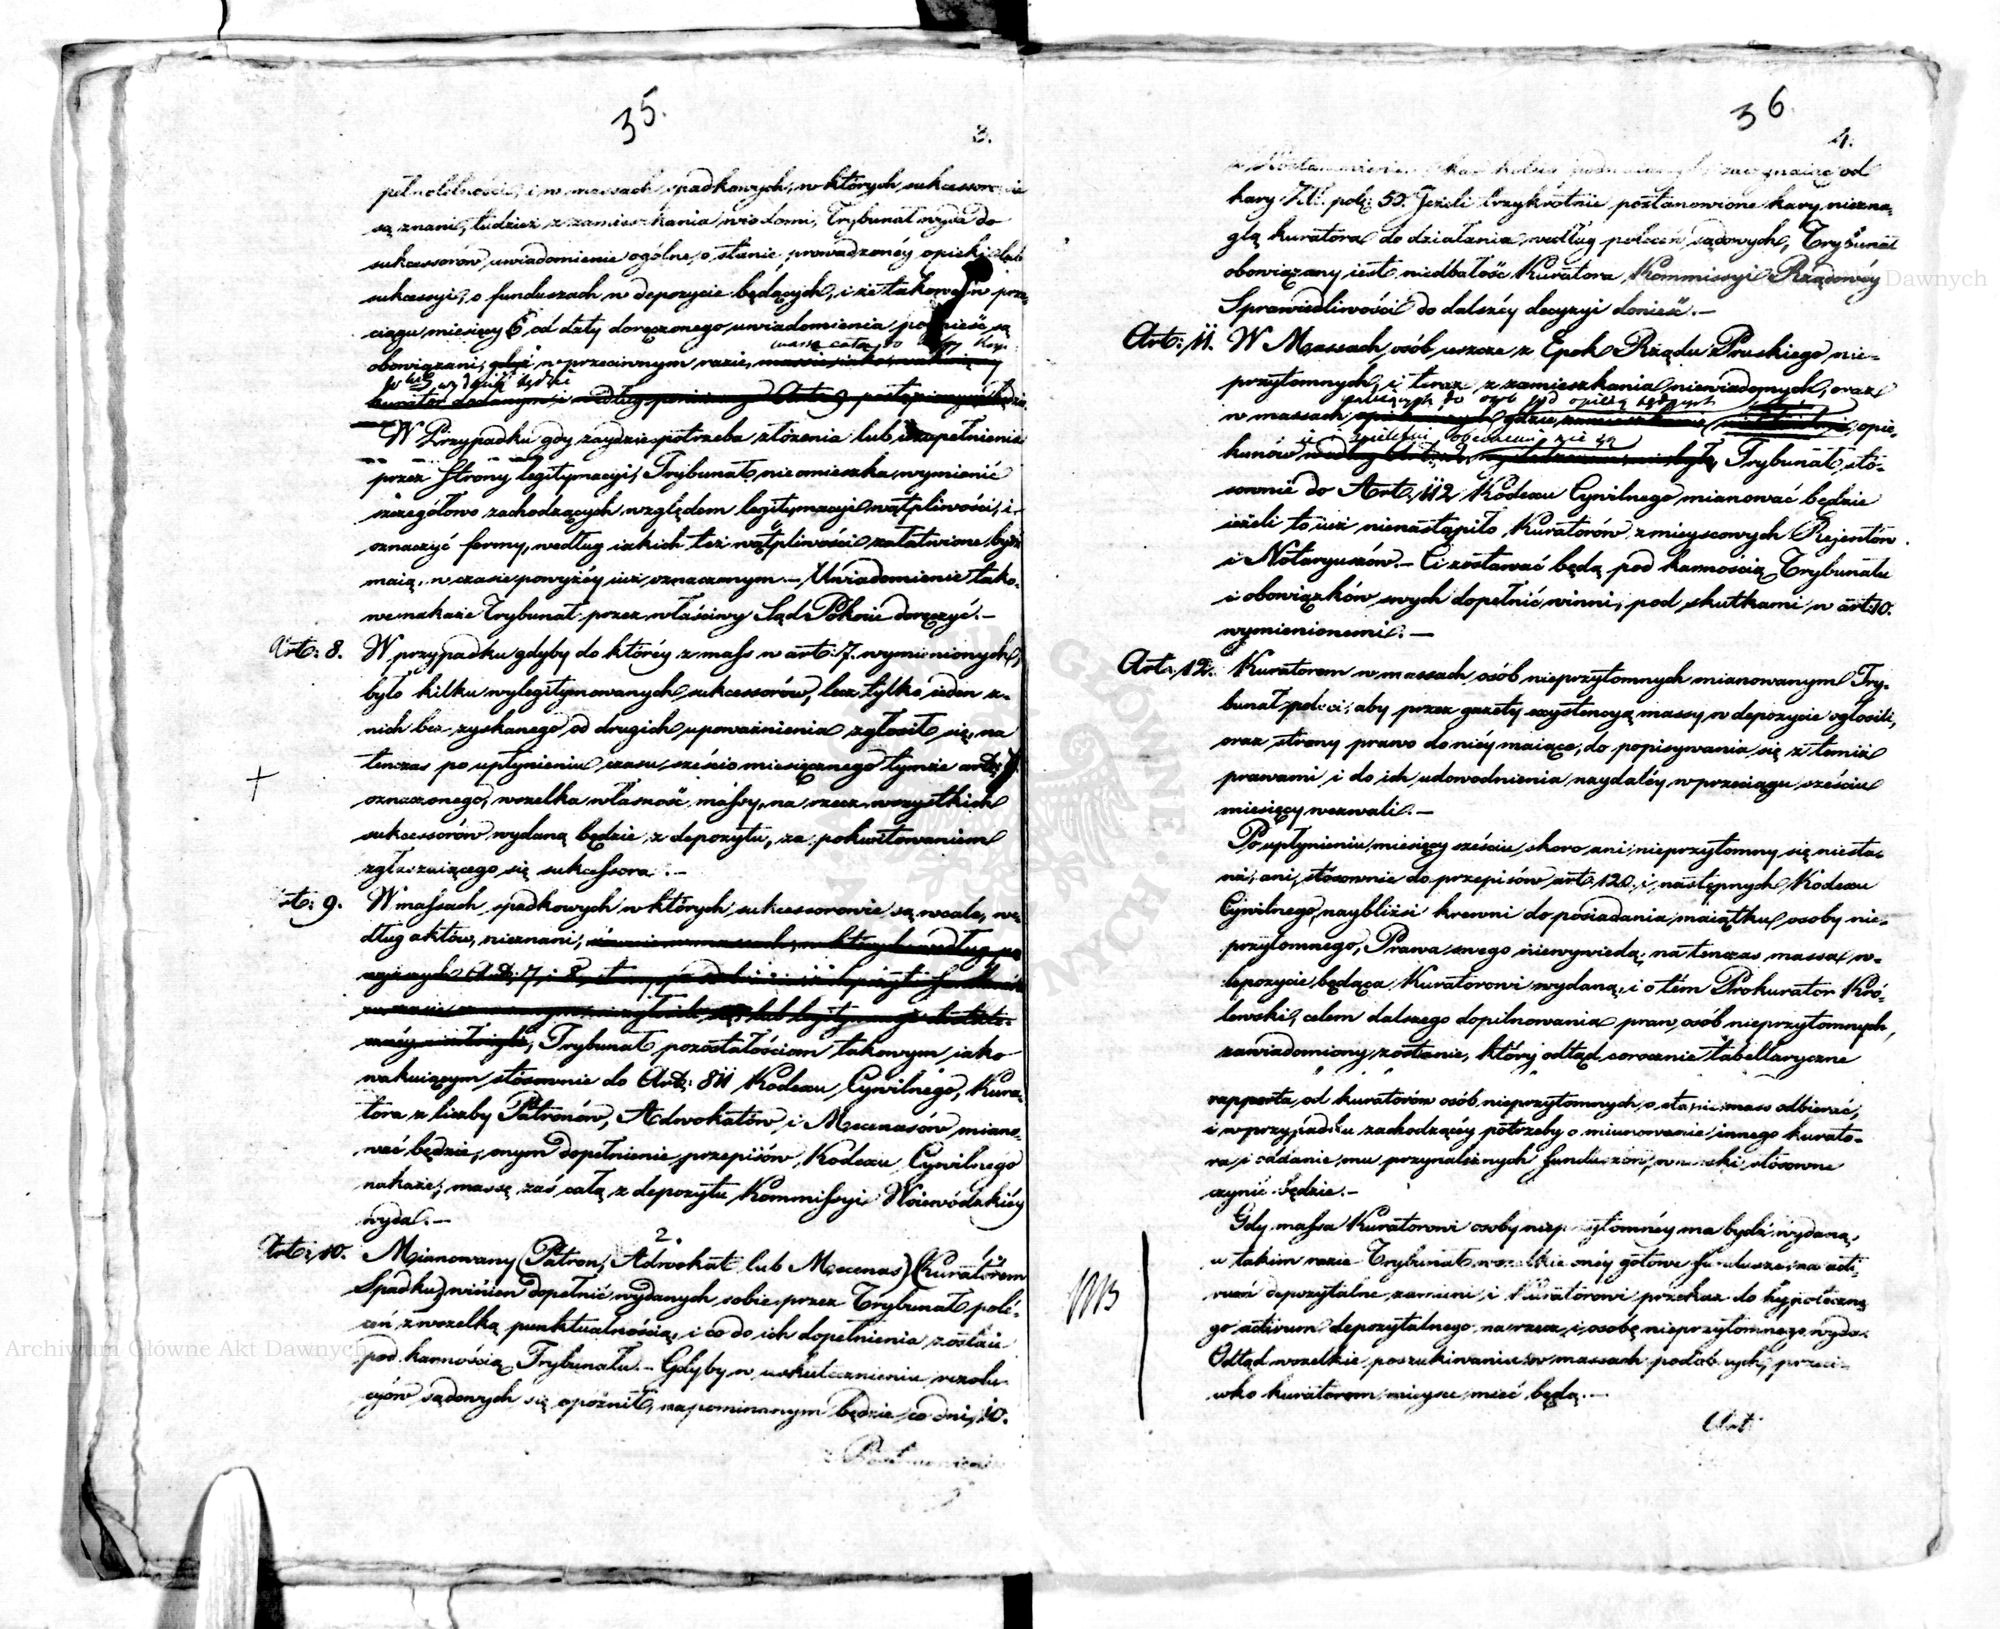 35.
3.
pełnoletności, i w massach spadkowych, w których sukcessorowie
są znani, tudzież z zamieszkania wiadomi, Trybunał wyda do
sukcessorów uwiadomienie ogólne, o stanie prowadzonéy opieki lub
sukcessyi, o funduszach w depozycie będących, i że takowe w prze-
ciągu miesięcy 6, od daty doręczonego uwiadomienia, podnieść są
massa cała do
obowiązani, gdyż w przeciwnym razie,
wydaną będzie
W Przypadku gdy zaydzie potrzeba złożenia lub uzupełnienia
przez Strony legitymacyi, Trybunał nieomieszka wymienić
szczegółowo zachodzących względem legitymacyi wątpliwości, i
oznaczyć formy, według iakich też wątpliwości załatwione bydź
maią, w czasie powyżéy iuż oznaczonym. – Uwiadomienie tako-
we nakaże Trybunał przez właściwy Sąd Pokoiu doręczyć. –
Art: 8. W przypadku gdyby do któréy z mass w art: 7. wymienionych,
było kilku wylegitymowanych sukcessorów, lecz tylko ieden z
nich bez zyskanego od drugich upoważnienia zgłosił się, na
tenczas po upłynieniu czasu sześcio miesięcznego tymże art: 7.
oznaczonego, wszelka własność massy, na rzecz wszystkich
sukcessorów wydaną będzie z depozytu, za pokwitowaniem
zgłaszaiącego się sukcessora. –
rt: 9. W massach spadkowych w których sukcessorowie są wcale, we-
dług aktów, nieznani,
Trybunał pozostałościom takowym iako
wakuiącym stósownie do Art: 811 Kodexu Cywilnego, Kura-
tora z liczby Patronów, Adwokatów i Mecenasów miano-
wać będzie, onym dopełnienie przepisów Kodexu Cywilnego
nakaże, massę zaś całą z depozytu Kommissyi Woiewódzkiéy
wyda. –
2.
Art: 10. Mianowany (Patron, Adwokat lub Mecenas) (Kuratorem
Spadku) winien dopełnić wydanych sobie przez Trybunał pole-
ceń z wszelką punktualnością, i co do ich dopełnienia zostaie
pod karnością Trybunału. – Gdyby w uskutecznieniu rezolu-
cyów sądowych się opóźnił, napominanym będzie co dni 10.
Postanowieniem
36.
4.
od
kary Zł. pol: 50. Jeżeli trzykrotnie postanowione kary niezna-
glą kuratora do działania według poleceń sądowych, Trybunał
obowiązany iest niedbałość Kuratora, Kommissyi Rządowéy
Sprawiedliwości do dalszéy decyzyi donieść. –
Art: 11. W Massach osób ieszcze z Epok Rządu Pruskiego nie-
przytomnych, i teraz z zamieszkania niewiadomych, oraz
do osób pod opieką będących
w massach opie-
kunów Trybunał stó-
sownie do Art: 112 Kodexu Cywilnego mianować będzie
ieżeli to iuż nienastąpiło, Kuratorów z mieyscowych Rejentów
i Notaryuszów. – Ci zostawać będą pod karnością Trybunału
i obowiązków swych dopełnić winni, pod skutkami w art: 10.
wymienionemi. –
Art: 12. Kuratorom w massach osób nieprzytomnych mianowanym Try-
bunał poleci, aby przez gazety exystencyą massy w depozycie ogłosili,
oraz strony prawo do niéy maiące, do popisywania się z temiż
prawami i do ich udowodnienia naydaléy w przeciągu sześciu
miesięcy wezwali. –
Po upłynieniu miesięcy sześciu, skoro ani nieprzytomny się niesta-
wi, ani, stósownie do przepisów art: 120. i następnych Kodexu
Cywilnego, naybliżsi krewni do posiadania maiątku osoby nie-
przytomnego, Prawa swego niewywiedą, na tenczas massa w
depozycie będąca Kuratorowi wydaną, i o tém Prokurator Kró-
lewski, celem dalszego dopilnowania praw osób nieprzytomnych,
zawiadomiony zostanie, który odtąd corocznie tabellaryczne
rapporta, od kuratorów osób nieprzytomnych, o stanie mass odbierać,
i w przypadku zachodzącéy potrzeby o mianowanie innego kurato-
ra i oddanie mu przynależnych funduszów, wnioski stósowne
czynić będzie. –
NB
Gdy massa Kuratorowi osoby nieprzytomnéy ma bydź wydaną,
w takim razie Trybunał wszelkie onéy gotowe fundusze, na acti-
vum depozytalne zamieni, i Kuratorowi przekaz do hypoteczne-
go activum depozytalnego na rzecz i osobę nieprzytomnego, wyda.
Odtąd wszelkie poszukiwania w massach podobnych, przeci-
wko kuratorom mieysce mieć będą. –
Art:
Archiwum Główne Akt Dawnych